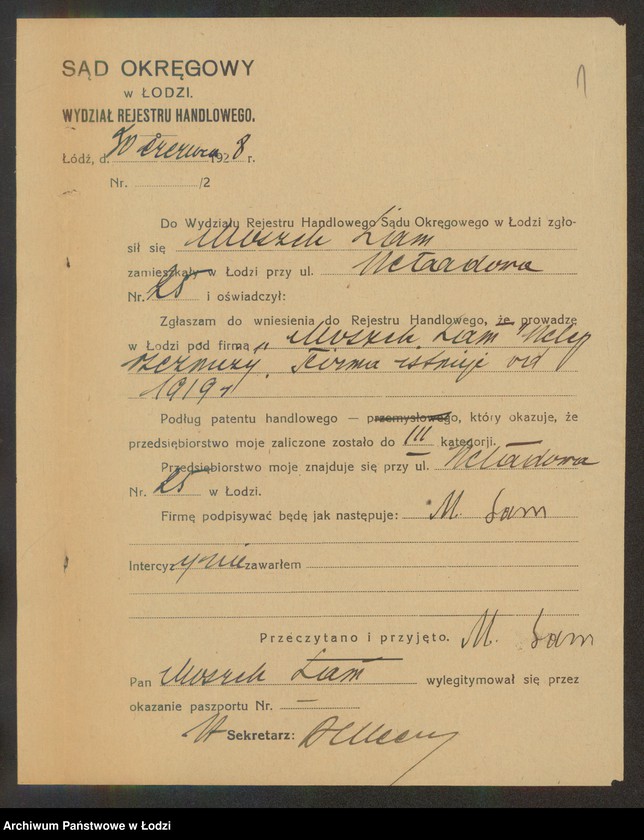 1
SĄD OKRĘGOWY
w ŁODZI.
WYDZIAŁ REJESTRU HANDLOWEGO.
Łódź, d. czerwca 1928 r.
Nr. /2
Do Wydziału Rejestru Handlowego Sądu Okręgowego w Łodzi zgło-
sił się Moszek Łam
zamieszkały w Łodzi przy ul. Składowa
Nr. 25 i oświadczył:
Zgłaszam do wniesienia do Rejestru Handlowego, że prowadzę
w Łodzi pod firmą „Moszek Łam" Sklep
Firma istnieje od
1919 r
Podług patentu handlowego — przemysłowego, który okazuje, że
przedsiębiorstwo moje zaliczone zostało do III kategorji.
Przedsiębiorstwo moje znajduje się przy ul. Składowa
Nr. 25 w Łodzi.
Firmę podpisywać będę jak następuje: M. Łam
Intercyzy nie zawarłem
Przeczytano i przyjęto. M. Łam
Pan Moszek Łam wylegitymował się przez
okazanie paszportu Nr. —
Sekretarz:
Archiwum Państwowe w Łodzi